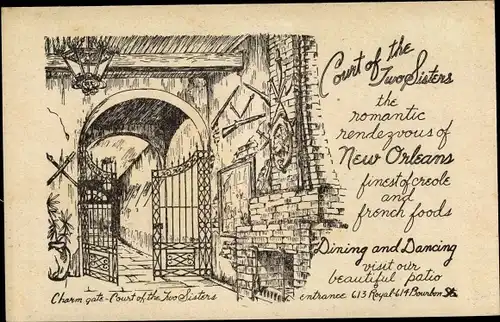 Court of the
Two Sisters
the
romantic
rendezvous of
New Orleans
finest of creole
and
french foods
Dining and Dancing
visit our
beautiful patio
entrance 613 Royal-614 Bourbon Sts
Charm gate-Court of the Two Sisters